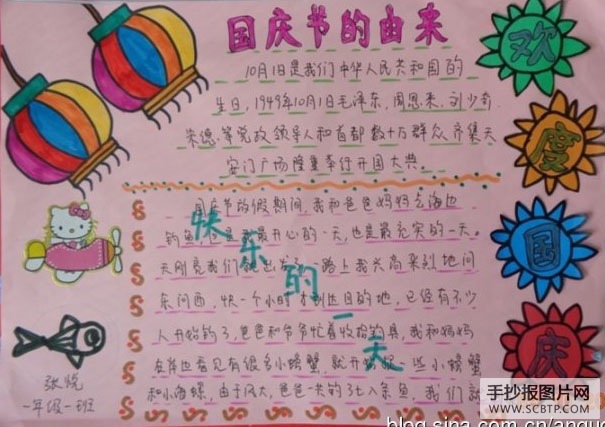 国庆节的由来
10月1日是我们中华人民共和国的
生日,1949年10月1日毛泽东、周恩来、刘少奇、
朱德等党政领导人和首都数十万群众齐集天
安门广场隆重举行开国大典。
欢
度
国
庆
快乐的一天
国庆节放假期间,我和爸爸妈妈去海边
钓鱼,是我最开心的一天,也是最充实的一天。
天刚亮我们就出发了,一路上我兴高采烈地问
东问西,快一个小时才到达目的地,已经有不少
人开始钓了,爸爸和爷爷忙着收拾钓具,我和妈妈
在岸边看见有很多小螃蟹,就开始捉一些小螃蟹
和小海螺,由于风大,爸爸一共钓了七八条鱼,我们
张悦
一年级一班
手抄报图片网
WWW.SCBTP.COM
blog.sina.com.cn/anguo